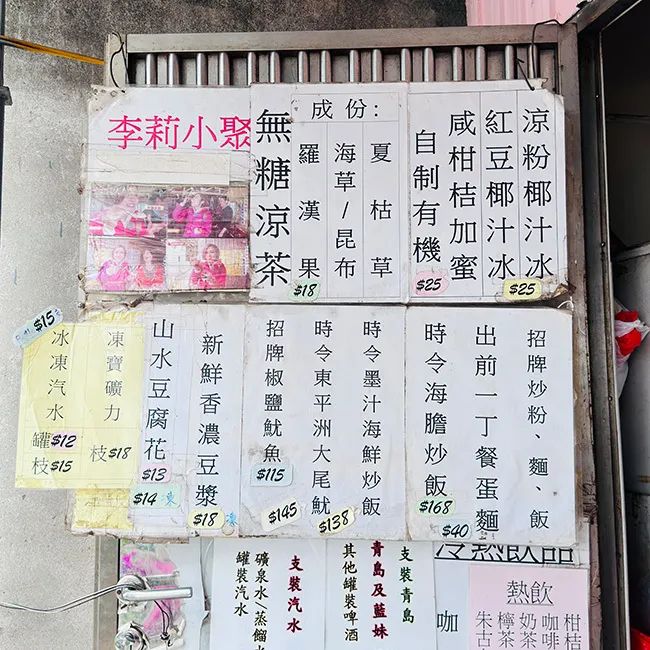 涼粉椰汁冰
$25
紅豆椰汁冰
咸柑桔加蜜
自制有機
$25
成份:
夏枯草
海草/昆布
羅漢果
$18
無糖涼茶
李莉小聚
招牌炒粉、麵、飯
出前一丁餐蛋麵
$40
時令海膽炒飯
$168
時令墨汁海鮮炒飯
$138
時令東平洲大尾魷
$145
招牌椒鹽魷魚
$115
新鮮香濃豆漿
$18 凍
山水豆腐花
$13
$14 凍
凍寶礦力
枝$18
$15
冰凍汽水
罐$12
枝$15
冷熱飲品
熱飲
柑桔
咖啡
奶茶
檸茶
朱古
咖
支裝青島
青島及藍妹
其他罐裝啤酒
支裝汽水
礦泉水/蒸餾
罐裝汽水